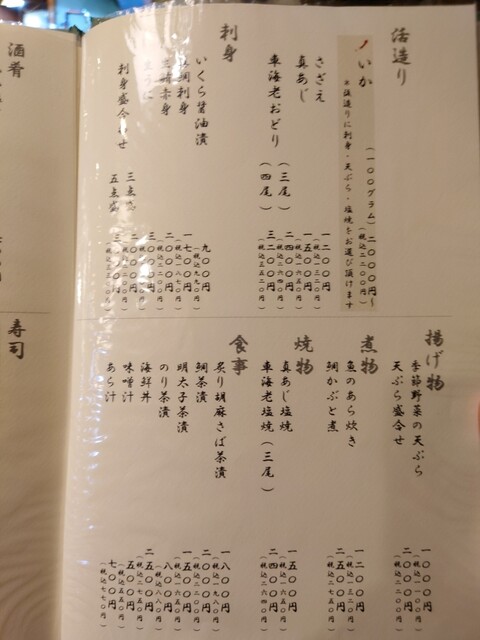 活造り
いか
(一〇〇グラム)二〇〇〇円〜
(税込二二〇〇円)
※活造りに刺身・天ぷら・塩焼をお選び頂けます
さざえ
一二〇〇円
(税込一三二〇円)
真あじ
一五〇〇円
(税込一六五〇円)
車海老おどり(三尾)
二四〇〇円
(税込二六四〇円)
(四尾)
三二〇〇円
(税込三五二〇円)
刺身
いくら醤油漬
九〇〇円
(税込九九〇円)
鯛刺身
一七〇〇円
(税込一八七〇円)
二〇〇〇円
(税込二二〇〇円)
刺身盛合せ
三点盛
五点盛
揚げ物
季節野菜の天ぷら
一〇〇〇円
(税込一一〇〇円)
天ぷら盛合せ
二〇〇〇円
(税込二二〇〇円)
煮物
魚のあら炊き
一二〇〇円
(税込一三二〇円)
鯛かぶと煮
二五〇〇円
(税込二七五〇円)
焼物
真あじ塩焼
一五〇〇円
(税込一六五〇円)
車海老塩焼(三尾)
二四〇〇円
(税込二六四〇円)
食事
炙り胡麻さば茶漬
一八〇〇円
(税込一九八〇円)
鯛茶漬
二〇〇〇円
(税込二二〇〇円)
明太子茶漬
一五〇〇円
(税込一六五〇円)
のり茶漬
八〇〇円
(税込八八〇円)
海鮮丼
二五〇〇円
(税込二七五〇円)
味噌汁
五〇〇円
(税込五五〇円)
あら汁
七〇〇円
(税込七七〇円)
酒肴
寿司